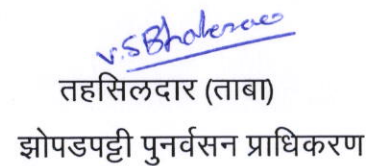 V.S Bhalerao
तहसिलदार (ताबा)
झोपडपट्टी पुनर्वसन प्राधिकरण